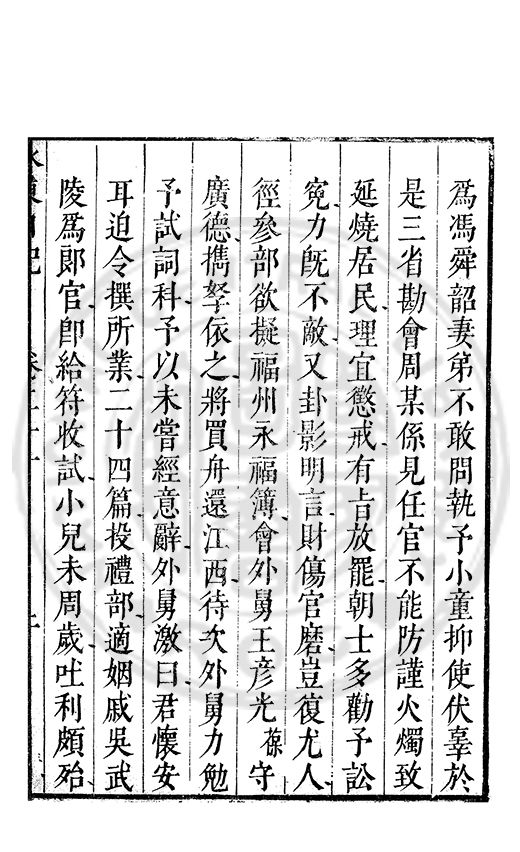 為馮舜韶妻弟不敢問執予小童抑使伏辜於
是三省勘會周某係見任官不能防謹火燭致
延燒居民理宜懲戒有旨放罷朝士多勸予訟
寃力旣不敵又卦影明言財傷官磨豈復尤人
徑參部欲擬福州永福簿會外舅王彥光葆守
廣德攜孥依之將買舟還江西待次外舅力勉
予試詞科予以未嘗經意辭外舅激曰君懷安
耳迫令撰所業二十四篇投禮部適姻戚吳武
陵為郞官卽給符收試小兒未周歲吐利頗殆